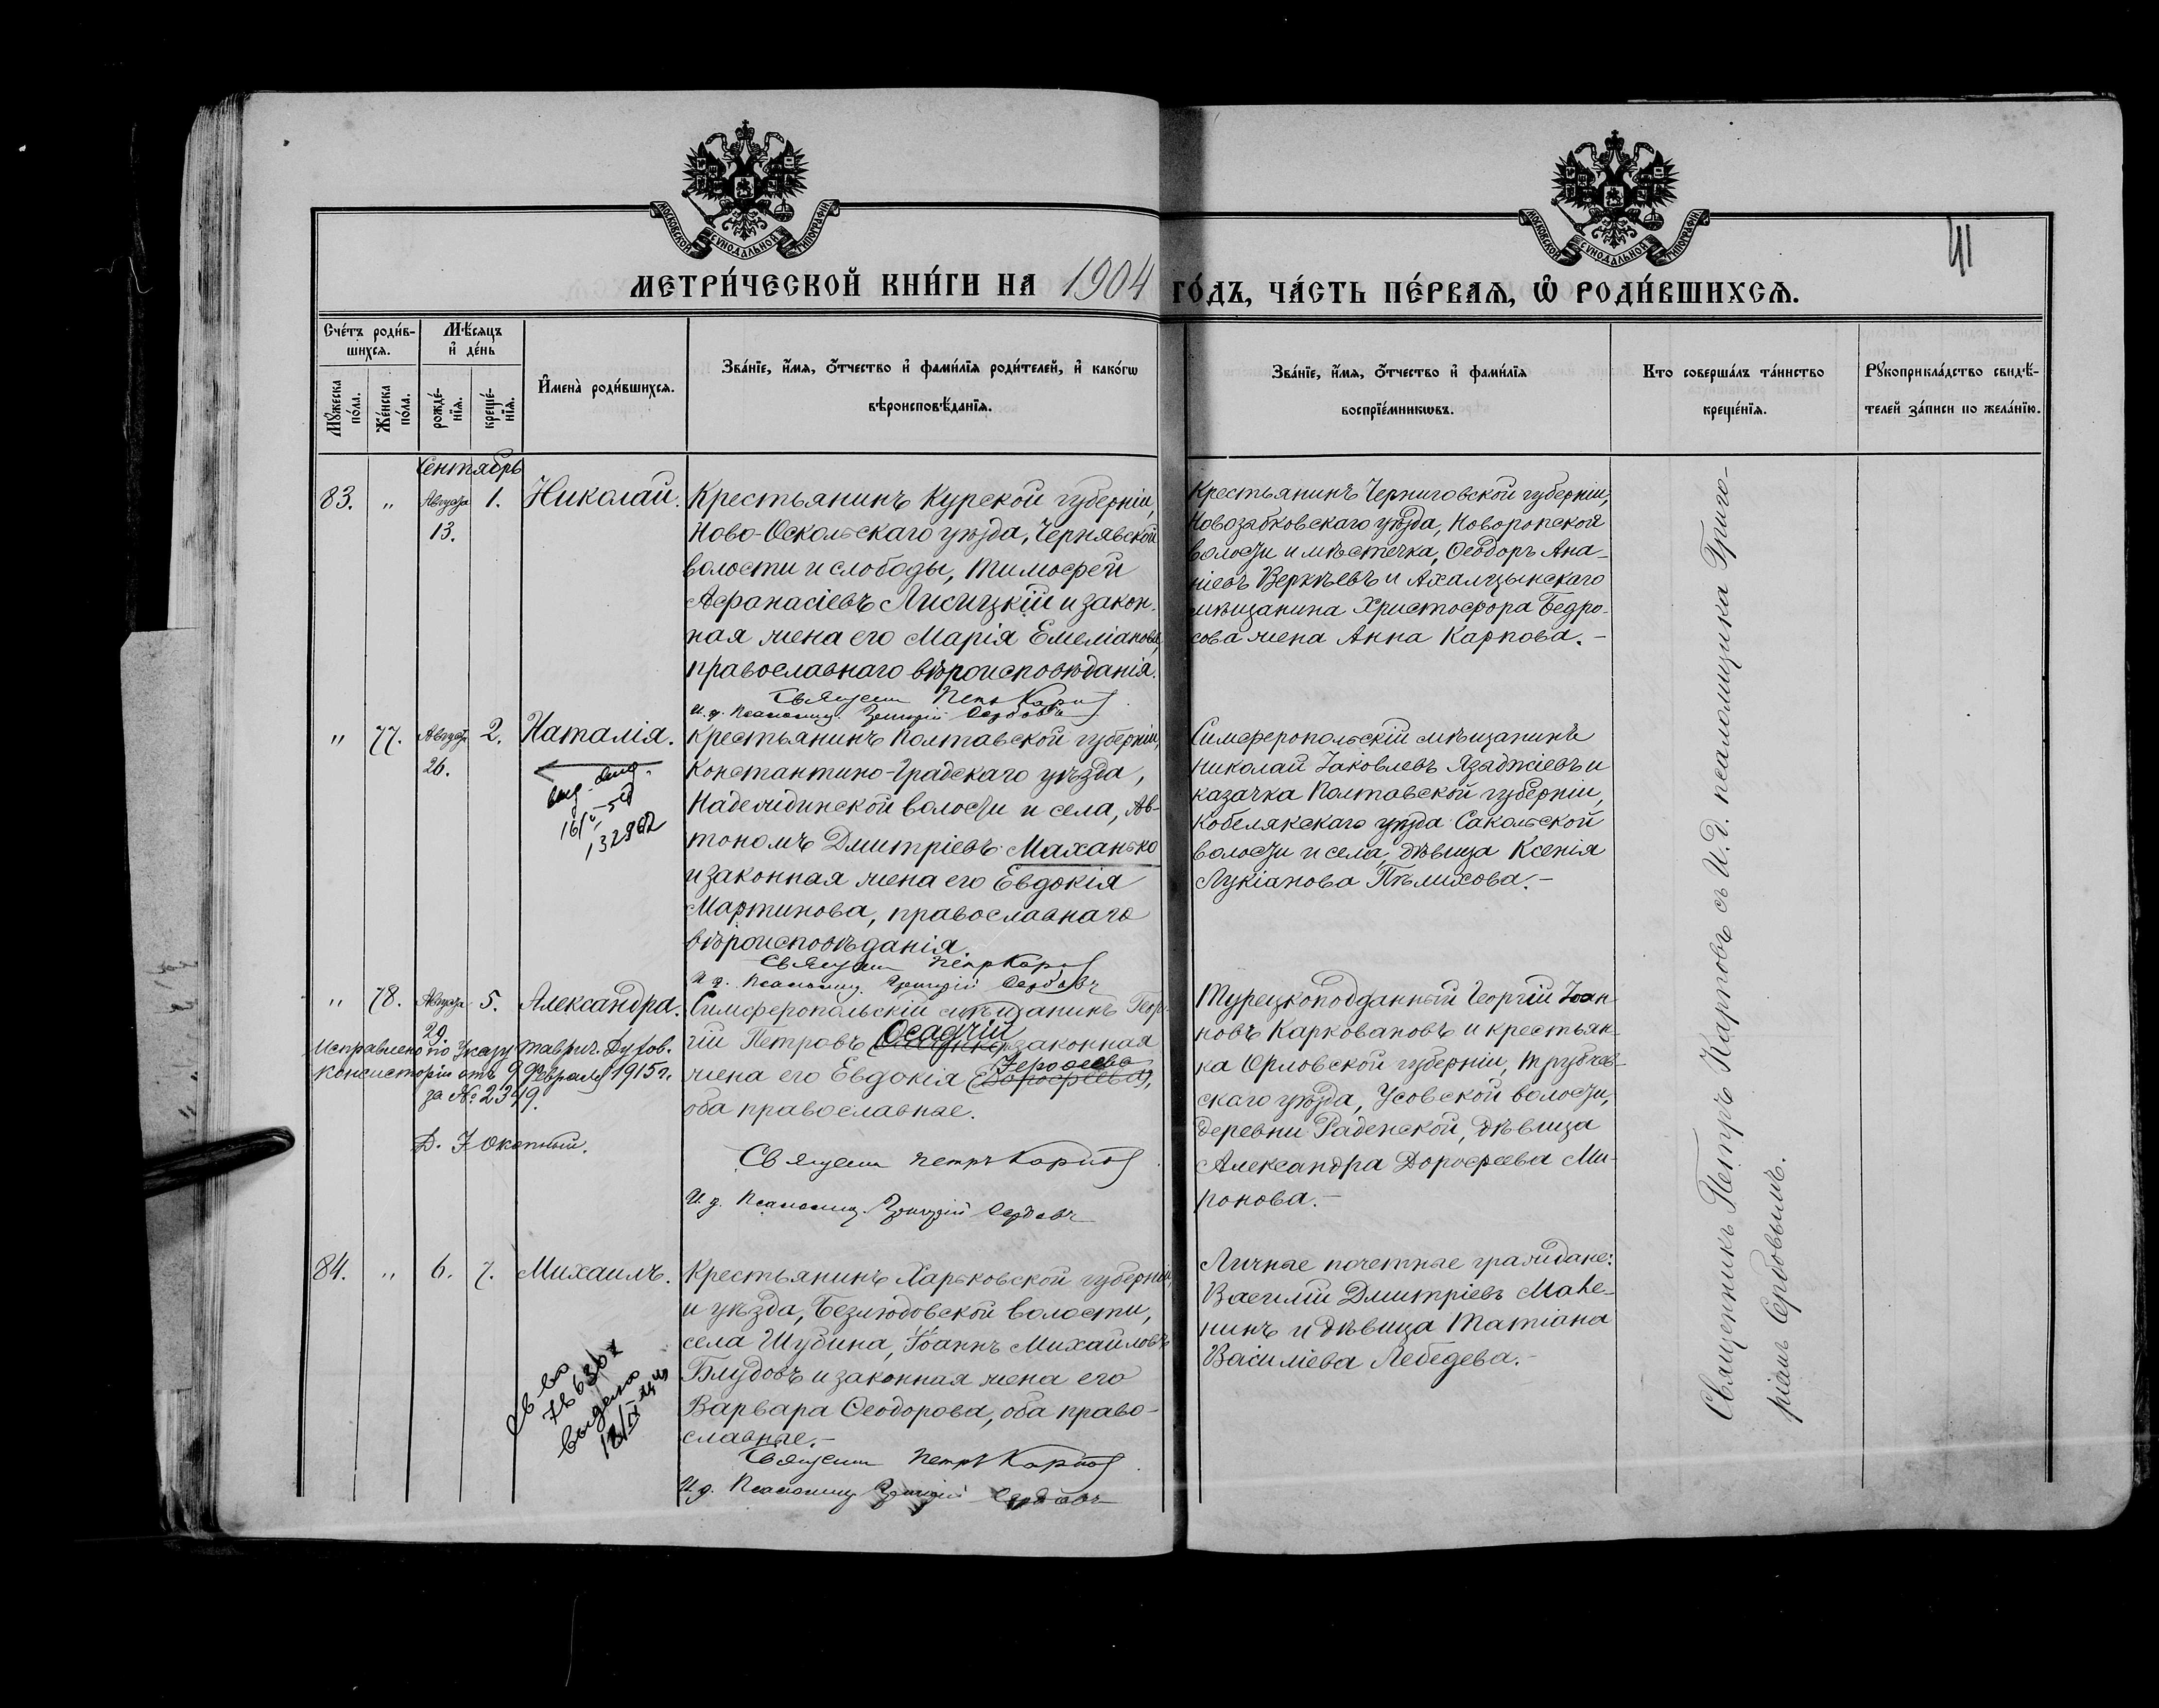 МОСКОВСКОЙ СѴНОДАЛЬНОЙ ТИПОГРАФІИ
МОСКОВСКОЙ СѴНОДАЛЬНОЙ ТИПОГРАФІИ
41
МЕТРИ́ЧЕСКОЙ КНИ́ГИ НА 1904 ГО́ДЪ, ЧА́СТЬ ПЕ́РВАѦ, Ѡ҆ РОДИ́ВШИХСѦ.
Сче́тъ роди́в-
шихсѧ.
Мꙋ́жеска по́ла.
Же́нска по́ла.
Мѣ́сяцъ
и҆ де́нь
рожде́-
нїѧ.
креще́-
нїѧ.
И҆мена̀ роди́вшихсѧ.
Зва́нїе, и҆́мѧ, ѻ҆́тчество и҆ фами́лїѧ роди́телей, и҆ како́гѡ
вѣроисповѣ́данїѧ.
Зва́нїе, и҆́мѧ, ѻ҆́тчество и҆ фами́лїѧ
воспрїе́мникѡвъ.
Кто соверша́лъ та́инство
креще́нїѧ.
Рꙋкоприкла́дство свидѣ́-
телей за́писи по жела́нїю.
Сентябрь
83. " Августа 13. 1. Николай.
Крестьянинъ Курской губерніи,
Ново-Оскольскаго уѣзда, Чернявской
волости и слободы, Тимоѳей
Аѳанасіевъ Лисицкій и закон-
ная жена его Марія Емеліанова,
православнаго вѣроисповѣданія.
Священ Петръ Карпов
И. д. Псаломщ. Григорій Сербовъ
Крестьянинъ Черниговской губерніи,
Новозыбковскаго уѣзда, Новоропской
волости и мѣстечка, Ѳеодоръ Ана-
ніевъ Веркѣевъ и Ахалцынскаго
мѣщанина Христофора Бедро-
сова жена Анна Карпова.-
" 77. Август. 26. 2. Наталія.
выд. дид.
132962
Крестьянинъ Полтавской губерніи,
Константино-Градскаго уѣзда,
Надеждинской волости и села, Ав-
тономъ Дмитріевъ Маханько
и законная жена его Евдокія
Мартинова, православнаго
вѣроисповѣданія.
Священ Петръ Карпов
И д. Псаломщ. Григорій Сербовъ
Симферопольскій мѣщанинъ
Николай Іаковлевъ Язаджіевъ и
казачка Полтавской губерніи,
Кобелякскаго уѣзда Сакольской
волости и села, дѣвица Ксенія
Лукіанова Пѣлихова.-
" 78. Августа 29. 5. Александра.
Исправлено по Указу Таврич. Духов.
Консисторіи отъ 9 Февраля 1915 г.
за № 2349.
Симферопольскій мѣщанинъ Геор-
гій Петровъ Осадчій законная
жена его Евдокія Дороѳеева,
оба православные.
Священ Петръ Карпов
И. д. Псаломщ. Григорій Сербовъ
Турецкоподданный Георгій Іоан-
новъ Карковановъ и крестьян-
ка Орловской губерніи, Трубчев-
скаго уѣзда, Усовской волости,
деревни Раденской, дѣвица
Александра Дорофеева Ми-
ронова.-
84. " 6. 7. Михаилъ.
выдано
Крестьянинъ Харьковской губерніи,
и уѣзда, Безлюдовской волости,
села Шубина, Іоаннъ Михаиловъ
Блудовъ и законная жена его
Варвара Ѳеодорова, оба право-
славные.-
Священ Петръ Карпов
И. д. Псаломщ Григорій Сербовъ
Личные почетные граждане:
Василій Дмитріевъ Мане-
нинъ и дѣвица Татіана
Василіева Лебедева.-
Священникъ Петръ Карповъ съ И. д. псаломщика Григо-
ріемъ Сербовымъ.